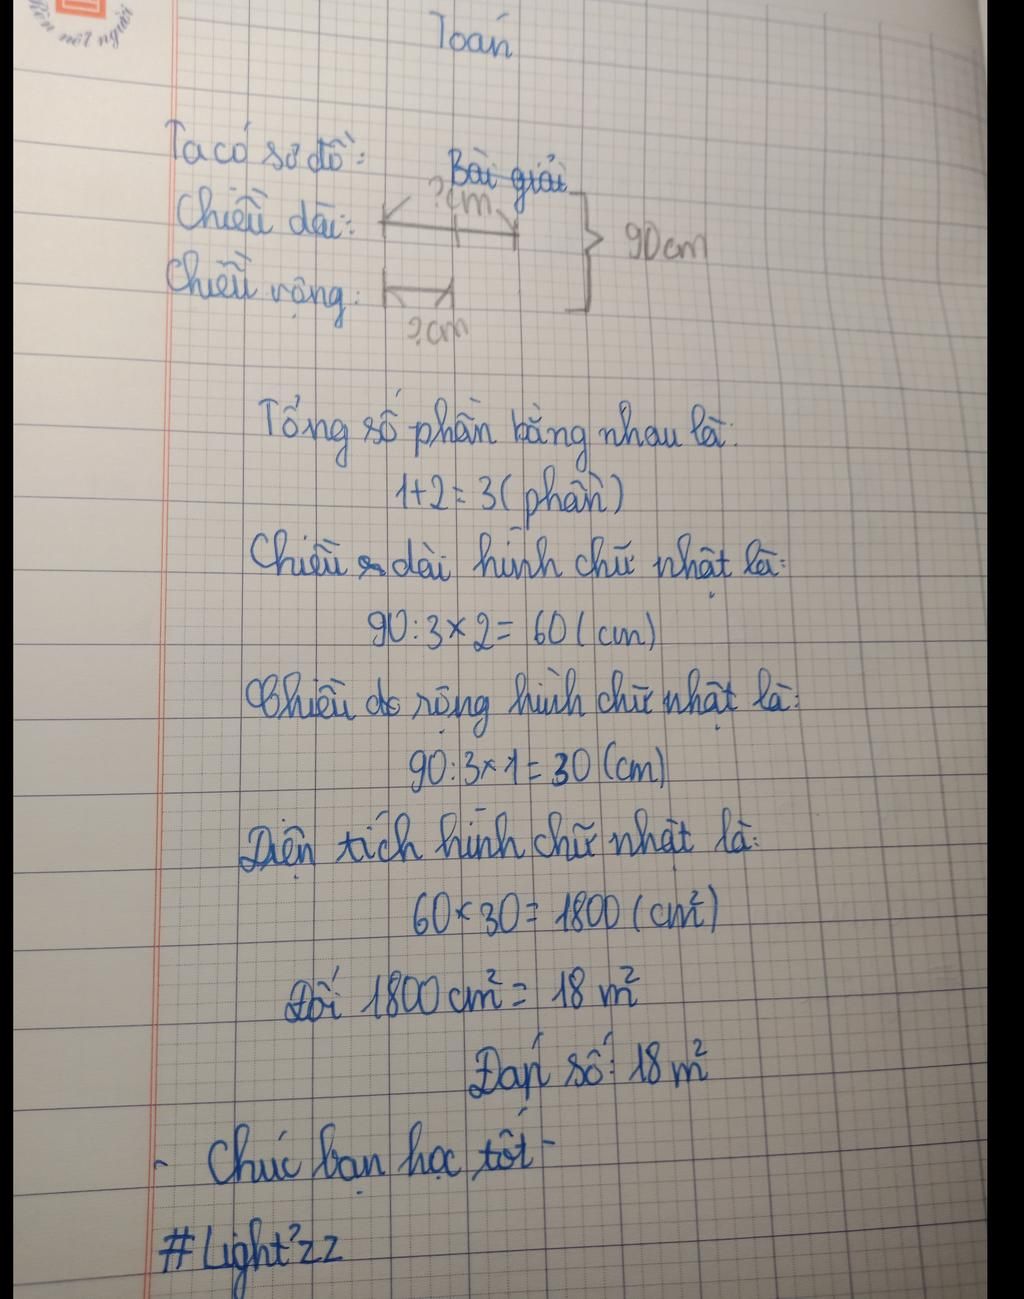 nét người
Toán
Bài giải
Ta có sơ đồ:
?cm
Chiều dài:
90cm
Chiều rộng:
?cm
Tổng số phần bằng nhau là:
1+2=3(phần)
Chiều dài hình chữ nhật là:
90:3×2=60(cm)
Chiều rộng hình chữ nhật là:
90:3×1=30(cm)
Diện tích hình chữ nhật là:
60×30=1800(cm²)
Đổi 1800cm²=18m²
Đáp số: 18m²
- Chúc bạn học tốt -
#Light'zz